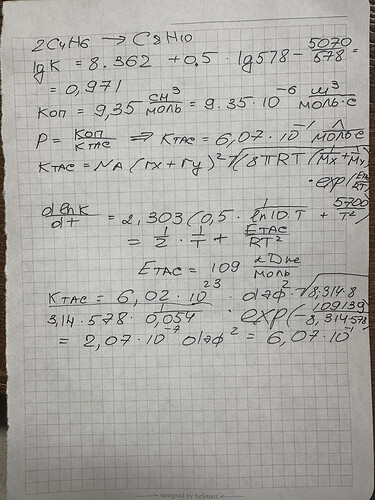 2C4H6 → C8H10
lgK = 8.362 + 0.5 · lg578 - 5070/578 =
= 0,971
Kоп = 9,35 см³/моль = 9.35·10⁻⁶ м³/моль·с
P = Kоп/Kтас ⇒ Kтас = 6,07·10⁻¹ л/моль·с
Kтас = NA (rx + ry)² √(8πRT (1/Mx + 1/My
· exp(Eтас/RT)
dlnK/dt = 2,303 (0,5 · 1/ln10·T + 5700/T²)
= 1/2 · 1/T + Eтас/RT²
Eтас = 109 кДже/моль
Kтас = 6,02·10²³ · dэф² √8,314·8
3,14·578· 1/0,054 · exp(-109139/8,314·578
= 2,07·10⁻⁷ dэф² = 6,07·10⁻¹
designed by beSmart